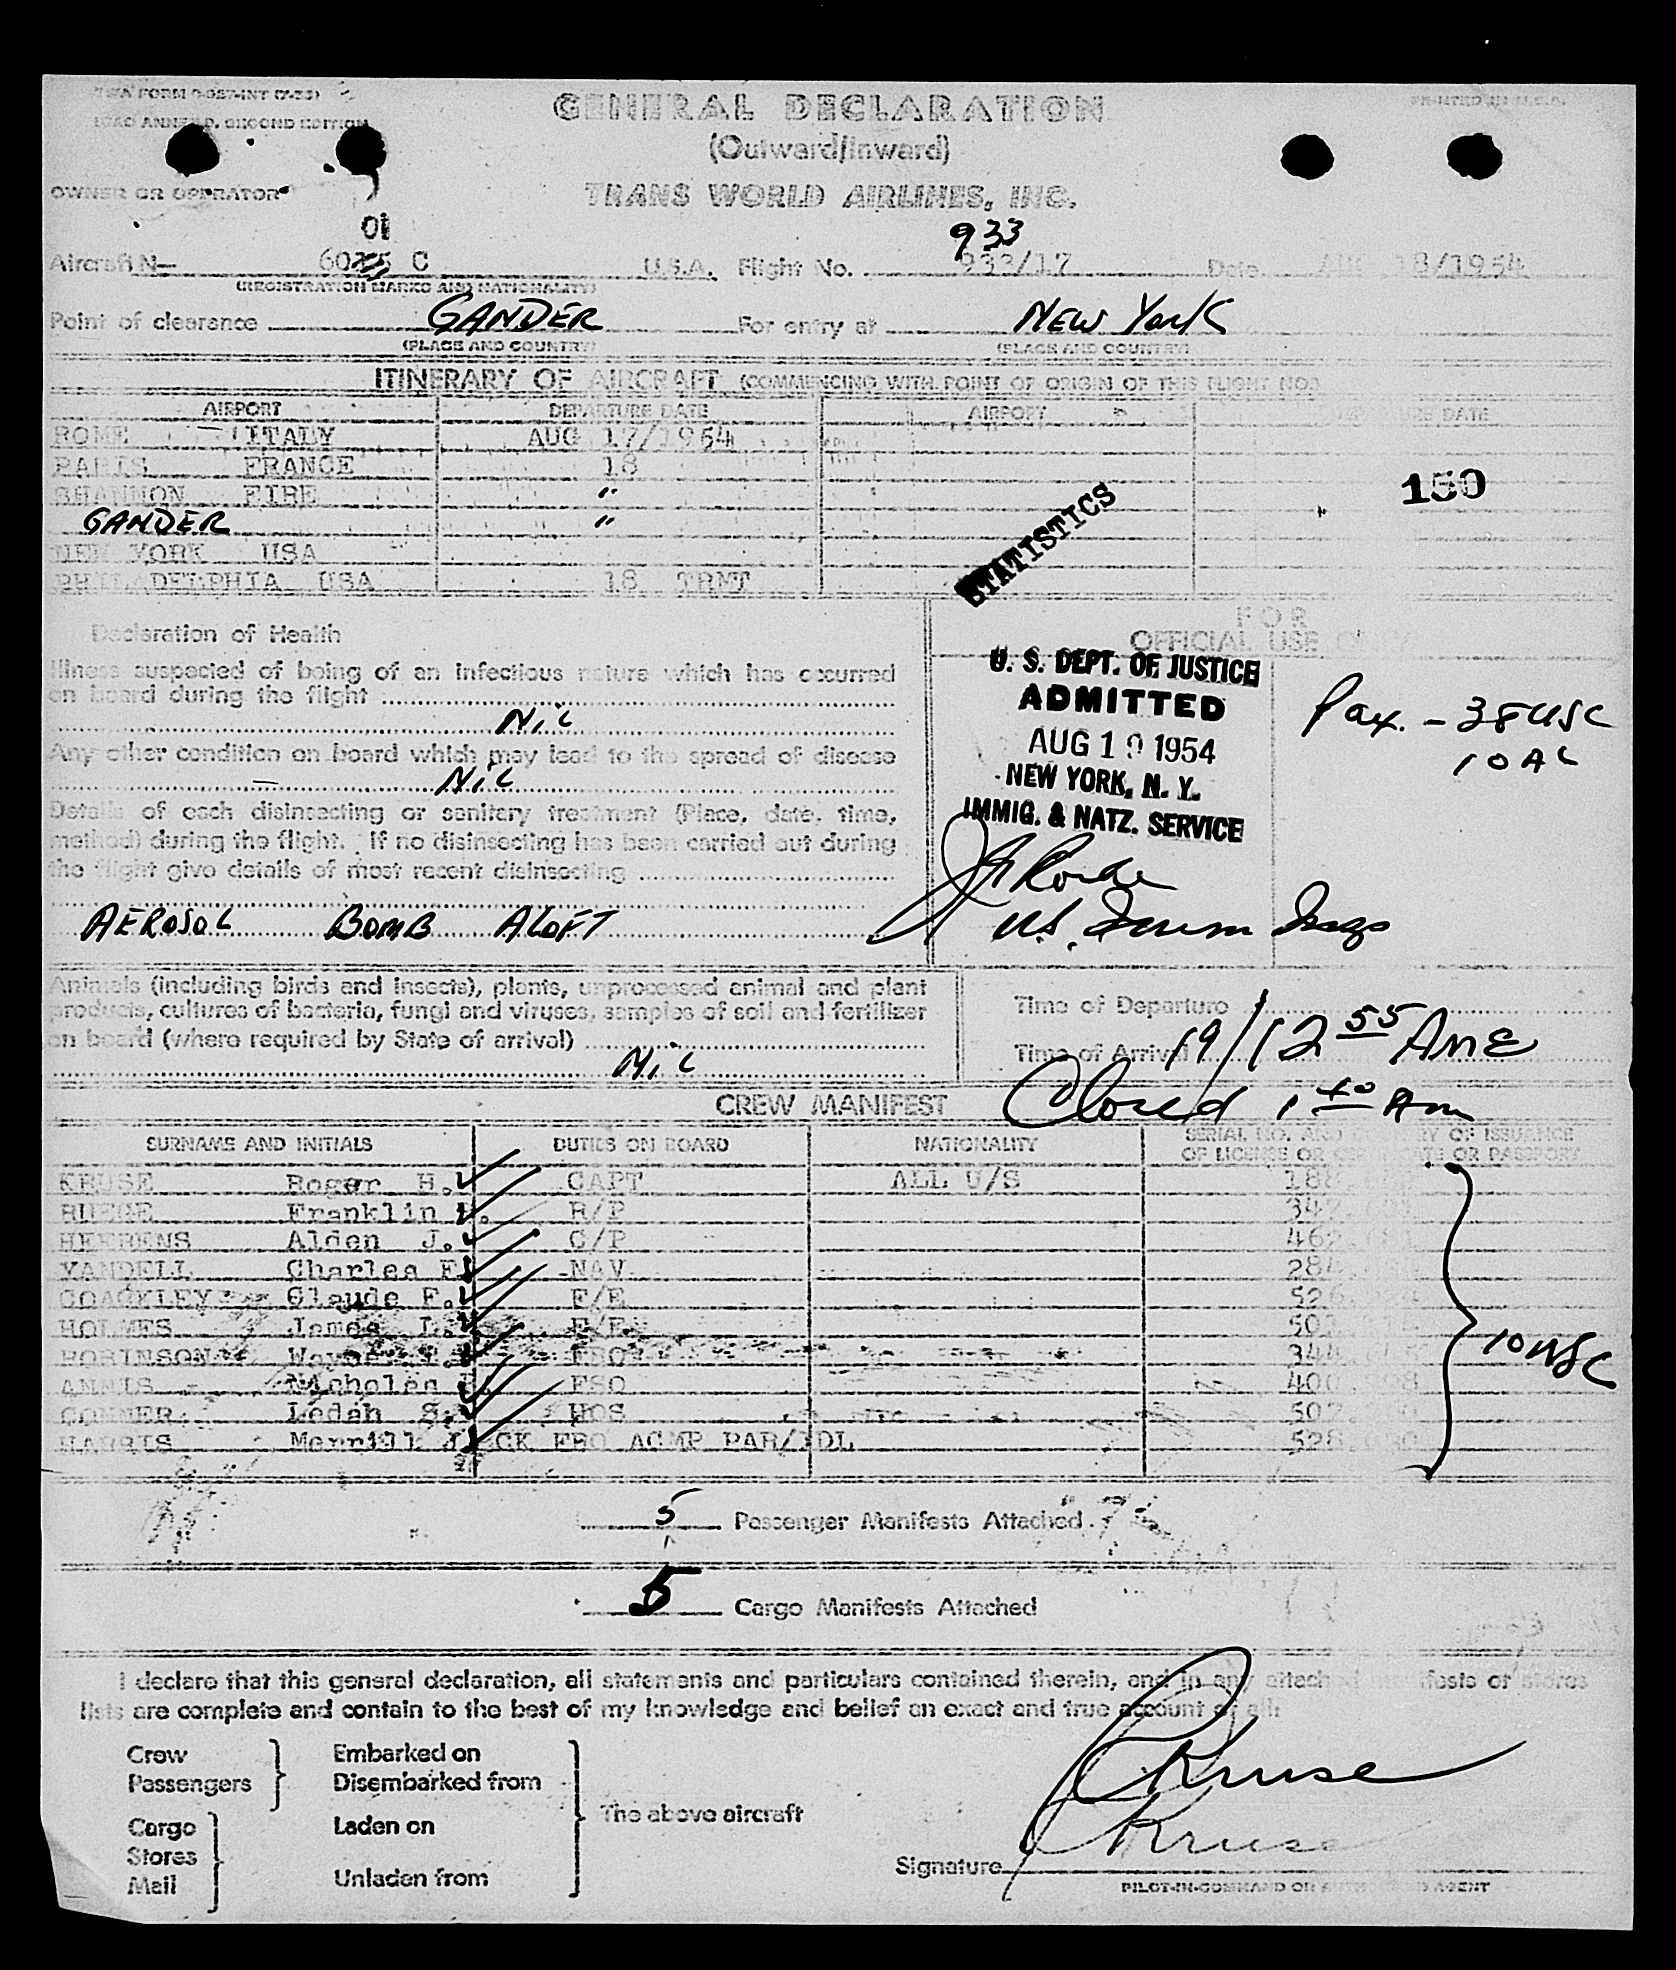 TWA FORM
ICAO ANNEX 9, SECOND EDITION
PRINTED IN U.S.A.
GENERAL DECLARATION
(Outward/Inward)
OWNER OR OPERATOR
TRANS WORLD AIRLINES, INC.
01
933
Aircraft N- 60 C U.S.A. Flight No. 933/17 Date AUG 18/1954
(REGISTRATION MARKS AND NATIONALITY)
Point of clearance GANDER For entry at NEW YORK
(PLACE AND COUNTRY) (PLACE AND COUNTRY)
ITINERARY OF AIRCRAFT (COMMENCING WITH POINT OF ORIGIN OF THIS FLIGHT NO.)
AIRPORT DEPARTURE DATE AIRPORT DEPARTURE DATE
ROME ITALY AUG 17/1954
PARIS FRANCE 18
SHANNON EIRE "
GANDER "
NEW YORK USA
PHILADELPHIA USA 18 TRMT
150
STATISTICS
Declaration of Health
Illness suspected of being of an infectious nature which has occurred
on board during the flight
Nil
Any other condition on board which may lead to the spread of disease
Nil
Details of each disinsecting or sanitary treatment (Place, date, time,
method) during the flight. If no disinsecting has been carried out during
the flight give details of most recent disinsecting
AEROSOL BOMB ALOFT
FOR
OFFICIAL USE ONLY
U. S. DEPT. OF JUSTICE
ADMITTED
AUG 19 1954
NEW YORK, N. Y.
IMMIG. & NATZ. SERVICE
U.S. Immm Insp
Pax. - 38 USC
10 AL
Animals (including birds and insects), plants, unprocessed animal and plant
products, cultures of bacteria, fungi and viruses, samples of soil and fertilizer
on board (where required by State of arrival)
Nil
Time of Departure
Time of Arrival 19/12 55 AM
Closed 1 40 Am
CREW MANIFEST
SURNAME AND INITIALS DUTIES ON BOARD NATIONALITY SERIAL NO. AND COUNTRY OF ISSUANCE
OF LICENSE OR CERTIFICATE OR PASSPORT
KRUSE Roger H. CAPT ALL U/S
Franklin R/P
HEERENS Alden J. C/P
YANDELL Charles F NAV
COACKLEY Claude F. F/E
HOLMES James L. F/E
ROBINSON Wayne FRO
ANNIS Nicholas FSO
CONNER Ledah S. HOS
HARRIS Merrill J CK FRO ACMP PAR/IDL
10 USC
5 Passenger Manifests Attached
5 Cargo Manifests Attached
I declare that this general declaration, all statements and particulars contained therein, and in any attached manifests or stores
lists are complete and contain to the best of my knowledge and belief an exact and true account of all:
Crew
Passengers
Embarked on
Disembarked from
Cargo
Stores
Mail
Laden on
Unladen from
The above aircraft
R Kruse
R Kruse
Signature
PILOT-IN-COMMAND OR AUTHORIZED AGENT